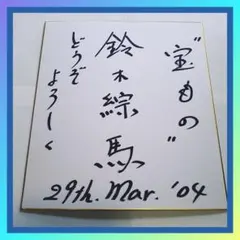 "宝もの"
鈴木綜馬
どうぞ
よろしく
29th. Mar. '04